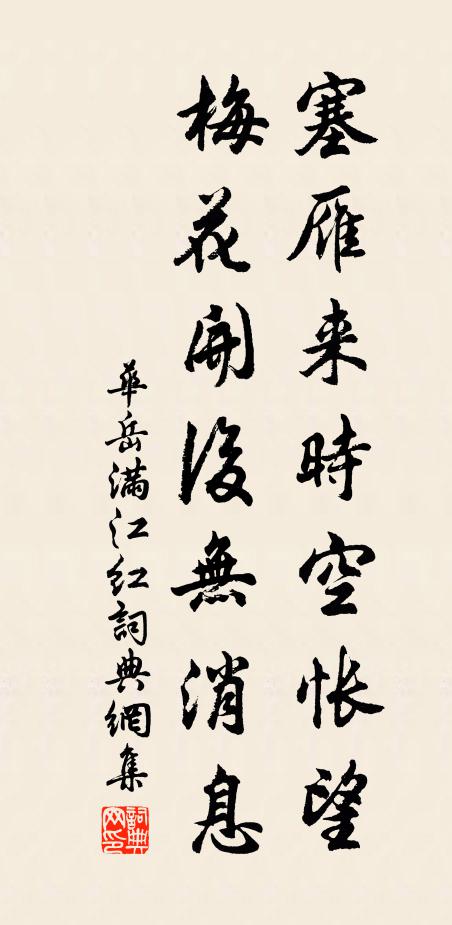 塞雁来時空悵望
梅花開後無消息
華岳滿江紅詞典網集
詞典网印